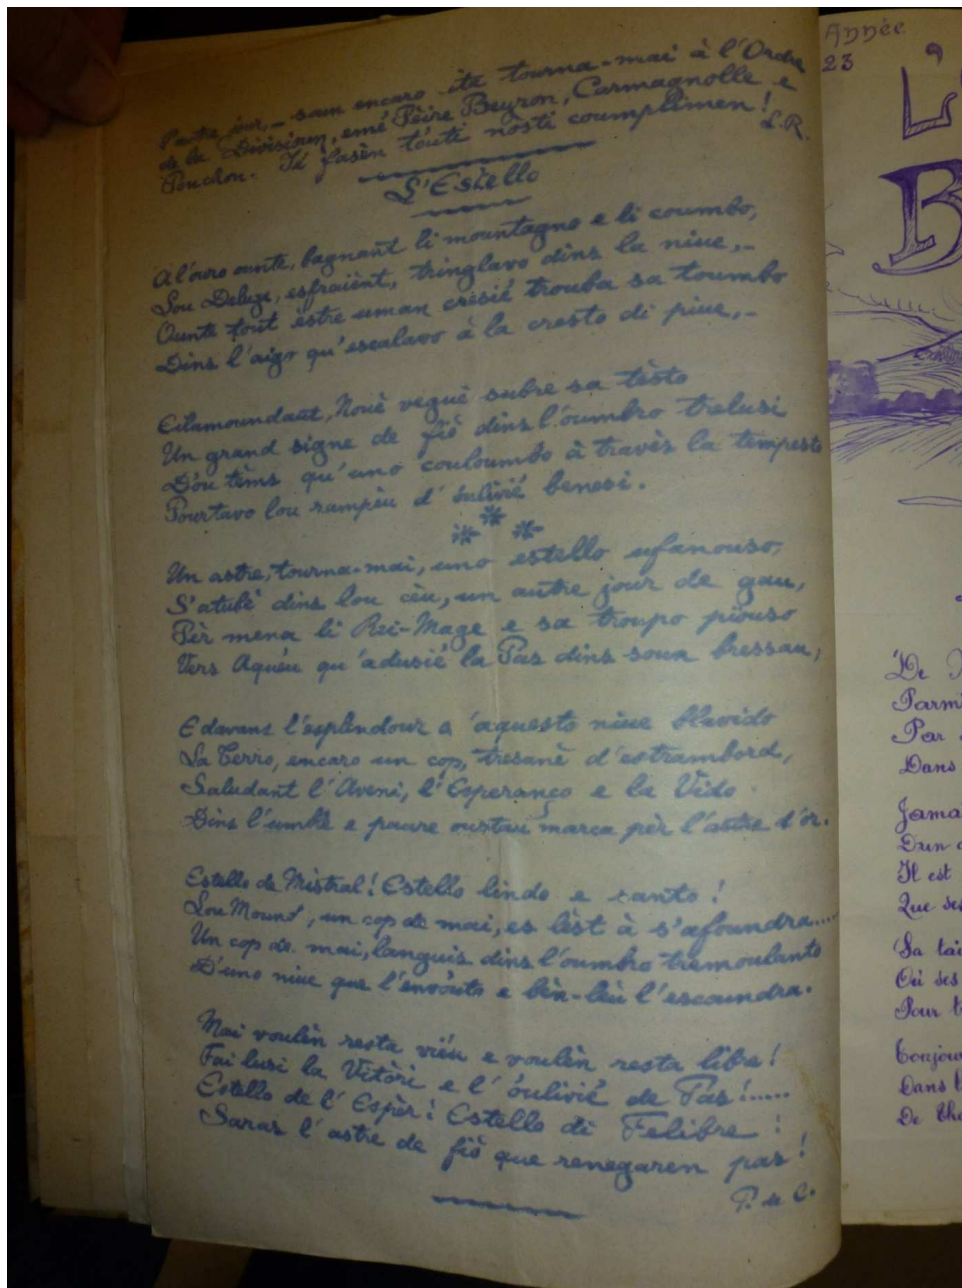 l'autre jour, - soun encaro ita tourna-mai à l'Ordre
de la Divisioun, emé Pèire Beyron, Carmagnolle e
Ponchon. Ié fasèn tóuti nòsti coumplimen!
L.R.
L'Estello
A l'ouro ounte, bagnant li mountagno e li coumbo,
Lou Deluge, esfraiènt, tringlavo dins la niue,-
Ounte tout èstre uman cresié trouba sa toumbo
Dins l'aigo qu'escalavo à la cresto di piue,-
Eilamoundaut, Nouè veguè subre sa tèsto
Un grand signe de fiò dins l'oumbro trelusi
Dóu tèms qu'uno couloumbo à travès la tempèsto
Pourtavo lou rampèu d'óulivié benesi.
Un astre, tourna-mai, uno estello ufanouso,
S'atubè dins lou cèu, un autre jour de gau,
Pèr mena li Rèi-Mage e sa troupo piouso
Vers Aquéu qu'adusié la Pas dins soun bressau;
E davans l'esplendour d'aquesto niue blavido
La Terro, encaro un cop, tresanè d'estrambord,
Saludant l'Aveni, l'Esperanço e la Vido
Dins l'umble e paure oustau marca pèr l'astre d'or.
Estello de Mistral! Estello lindo e santo!
Lou Mounde, un cop de mai, es lèst à s'afoundra.....
Un cop de mai, languis dins l'oumbro tremoulanto
D'uno niue que l'envóuto e bèn-lèu l'escoundra.
Mai voulèn resta viéu e voulèn resta libre!
Fai lusi la Vitòri e l'óulivié de Pas!.....
Estello de l'Espèr! Estello di Felibre!
Saras l'astre de fiò que renegaren pas!
P. de C.
Année
23
L'
B
De
Parmi
Par
Dans
Jama
D'un
Il est
Que ses
Sa tai
Où ses
Pour t
Toujou
Dans l
De